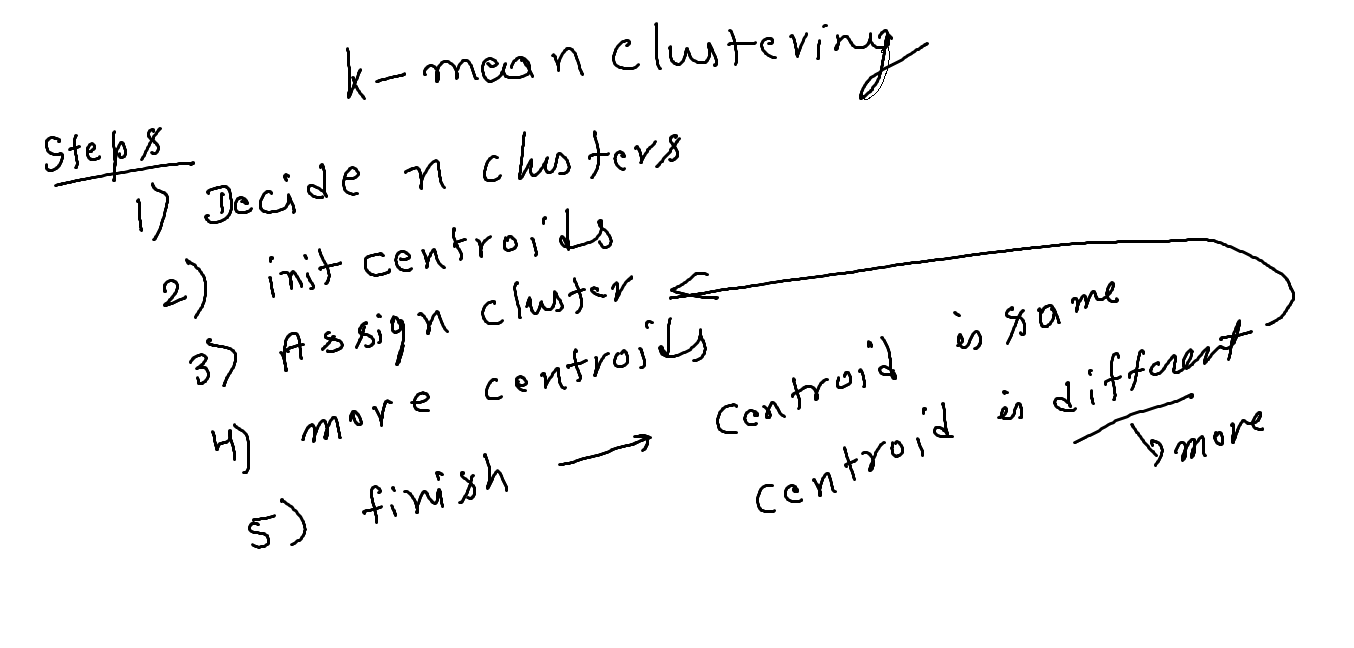 k-mean clustering
Steps
1) Decide n clusters
2) init centroids
3) Assign cluster
4) more centroids
5) finish → centroid is same
centroid is different
more